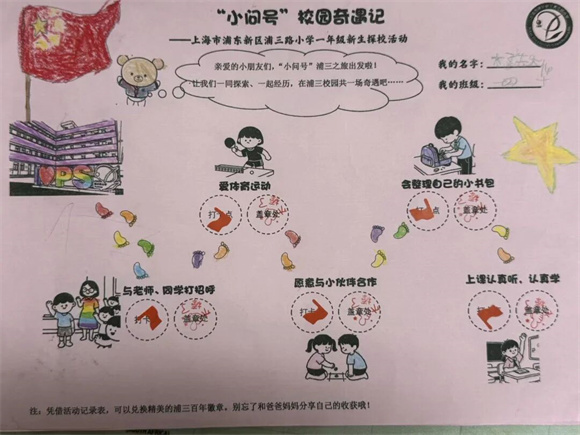 “小问号”校园奇遇记
——上海市浦东新区浦三路小学一年级新生探校活动
亲爱的小朋友们，“小问号”浦三之旅出发啦！
让我们一同探索、一起经历，在浦三校园共一场奇遇吧……
我的名字：
我的班级：四
PS
爱体育运动
打 点
盖章处
会整理自己的小书包
打 点
盖章处
与老师、同学打招呼
打
盖章处
愿意与小伙伴合作
打
盖章处
上课认真听、认真学
打
盖章处
注：凭借活动记录表，可以兑换精美的浦三百年徽章，别忘了和爸爸妈妈分享自己的收获哦！